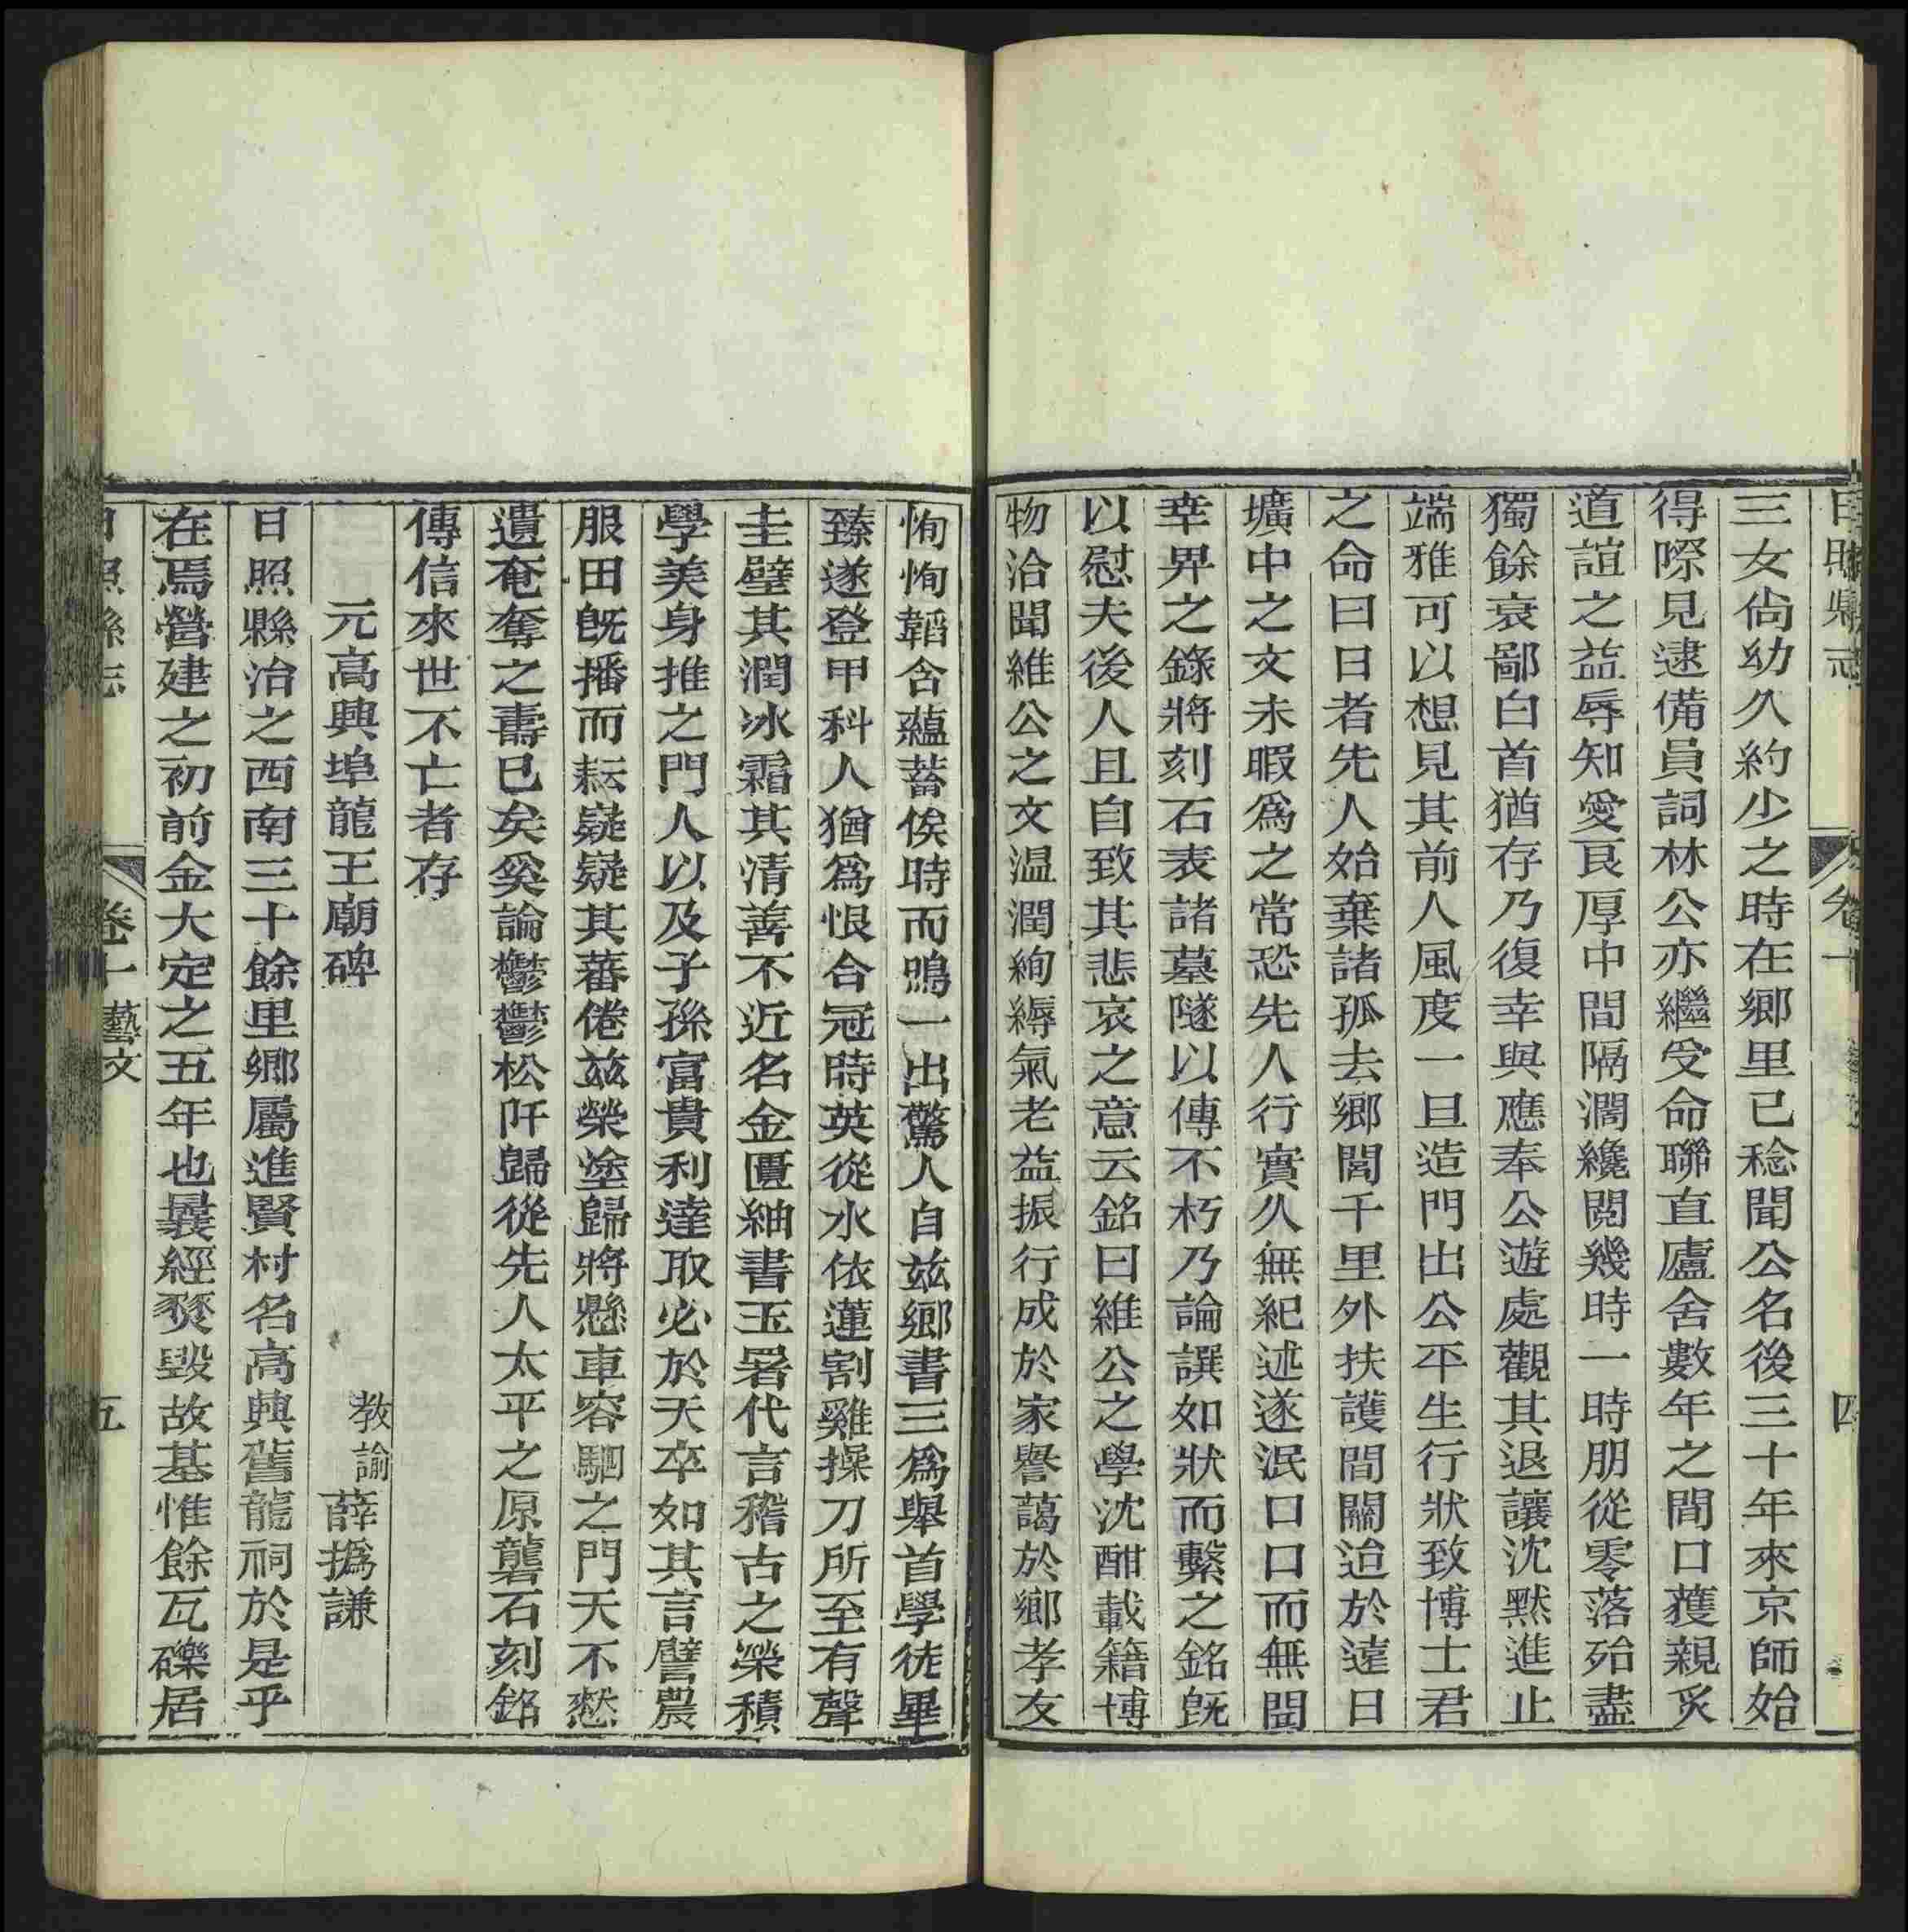 日照縣志 卷十 四
三女尙幼久約少之時在鄉里已稔聞公名後三十年來京師始
得際見逮備員詞林公亦繼受命聯直廬舍數年之間口獲親炙
道誼之益辱知愛良厚中間隔濶纔閱幾時一時朋從零落殆盡
獨餘衰鄙白首猶存乃復幸與應奉公遊處觀其退讓沈黙進止
端雅可以想見其前人風度一旦造門出公平生行狀致博士君
之命曰日者先人始棄諸孤去鄉閭千里外扶護間關迨於遠日
壙中之文未暇爲之常恐先人行實久無紀述遂泯口口而無聞
幸畀之錄將刻石表諸墓隧以傳不朽乃論譔如狀而繫之銘旣
以慰夫後人且自致其悲哀之意云銘曰維公之學沈酣載籍博
物洽聞維公之文温潤絢縟氣老益振行成於家譽藹於鄉孝友
恂恂韜含蘊蓄俟時而鳴一出驚人自兹鄉書三爲舉首學徒畢
臻遂登甲科人猶爲恨合冠時英從水依蓮割雞操刀所至有聲
圭璧其潤冰霜其清善不近名金匱紬書玉署代言稽古之榮積
學美身推之門人以及子孫富貴利達取必於天卒如其言譬農
服田旣播而耘嶷嶷其蕃倦兹榮塗歸將懸車容駟之門天不憖
遺奄奪之壽已矣奚論鬱鬱松阡歸從先人太平之原礱石刻銘
傳信來世不亡者存
元高興埠龍王廟碑
教諭 薛撝謙
日照縣治之西南三十餘里鄉屬進賢村名高興舊龍祠於是乎
在焉營建之初前金大定之五年也曩經燹毀故基惟餘瓦礫居
日照縣志 卷十 藝文 五